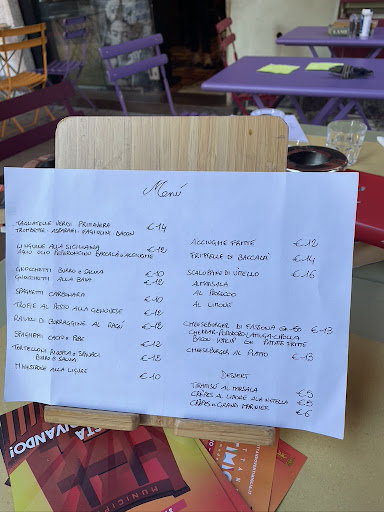 Menù
TAGLIATELLE VERDI PRIMAVERA €14
TROMBETTE - ASPARAGI - FAGIOLINI - BACON
LINGUINE ALLA SICILIANA €12
AGLIO OLIO PEPERONCINO BACCALÀ E ACCIUGHE
GNOCCHETTI BURRO E SALVIA €10
GNOCCHETTI ALLA BAVA €12
SPAGHETTI CARBONARA €10
TROFIE AL PESTO ALLA GENOVESE €12
RAVIOLI DI BORRAGGINE AL RAGÙ €12
SPAGHETTI CACIO E PEPE €12
TORTELLONI RICOTTA E SPINACI €12
BURRO E SALVIA
MINESTRONE ALLA LIGURE €10
ACCIUGHE FRITTE €12
FRITTELLE DI BACCALÀ €14
SCALOPPINE DI VITELLO €16
AL MARSALA
AL
AL LIMONE
CHEESEBURGER DI FASSONA €13
CHEDDAR-POMODORO-LATTUGA-CIPOLLA
BACON - CON PATATE FRITTE
CHEESEBURGER AL PIATTO €13
DESSERT
TIRAMISÙ AL MARSALA €5
CRÊPES AL LIMONE ALLA NUTELLA €5
CRÊPES AL GRAND MARNIER €6
VIVANDO!
MUNICIP